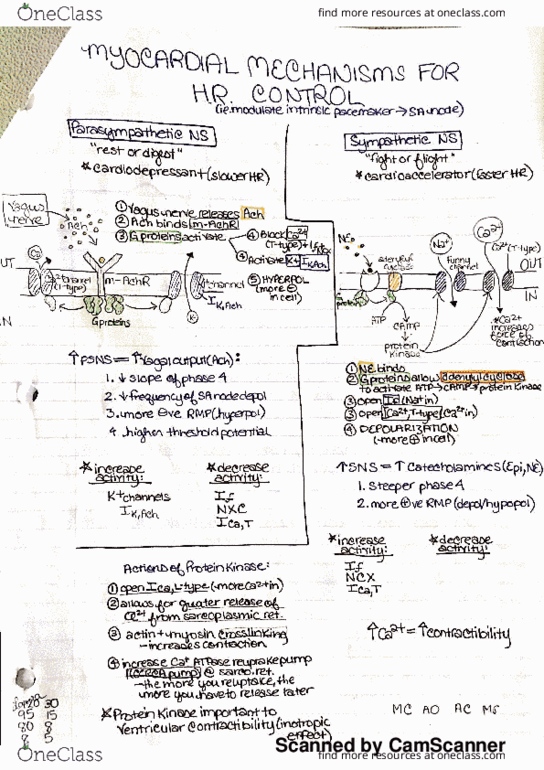 OneClass
find more resources at oneclass.com
MYOCARDIAL MECHANISMS FOR
H.R. CONTROL
(i.e. modulate intrinsic pacemaker → SA node)
Parasympathetic NS
"rest or digest"
*cardiodepressant (slower HR)
Vagus nerve
Ach
① Vagus nerve releases Ach
② Ach binds m-AchR
③ G proteins activate
④ Block Ca2+
(T-type) +
④ Activate K+ IK,Ach
⑤ HYPERPOL
(more ⊖
in cell)
OUT
IN
(T-type)
m-AchR
K+ channel
IK,Ach
K+
G proteins
↑PSNS = ↑Vagal output (Ach):
1. ↓ slope of phase 4
2. ↓ frequency of SA node depol
3. more ⊖ve RMP (hyperpol)
4. higher threshold potential
*increase activity:
K+ channels
IK,Ach
*decrease activity:
If
NXC
ICa,T
Sympathetic NS
"fight or flight"
*cardioaccelerator (faster HR)
NE
adenylyl cyclase
G protein
Na+
funny channel
Ca2+
Ca2+ (T-type)
OUT
IN
ATP
cAMP
protein kinase
*Ca2+
increases
force of
contraction
① NE binds
② G proteins allow adenylyl cyclase
to activate ATP → cAMP → protein kinase
③ open If (Na+ in)
③ open ICa2+, T-type (Ca2+ in)
④ DEPOLARIZATION
(-more ⊕ in cell)
↑SNS = ↑ Catecholamines (Epi, NE)
1. steeper phase 4
2. more ⊕ve RMP (depol/hypopol)
*increase activity:
If
NCX
ICa,T
*decrease activity:
Actions of Protein Kinase:
① open ICa, L-type (-more Ca2+ in)
② allows for greater release of
Ca2+ from sarcoplasmic ret.
③ actin + myosin crosslinking
- increases contraction
④ increase Ca+ ATPase reuptake pump
(SERCA pump) @ sarco. ret.
- the more you reuptake, the
more you have to release later
*Protein Kinase important to
ventricular contractibility (inotropic
effect)
↑Ca2+ = ↑contractibility
MC AO AC MS
30
95 15
80 8
8 5
Scanned by CamScanner
OneClass
find more resources at oneclass.com